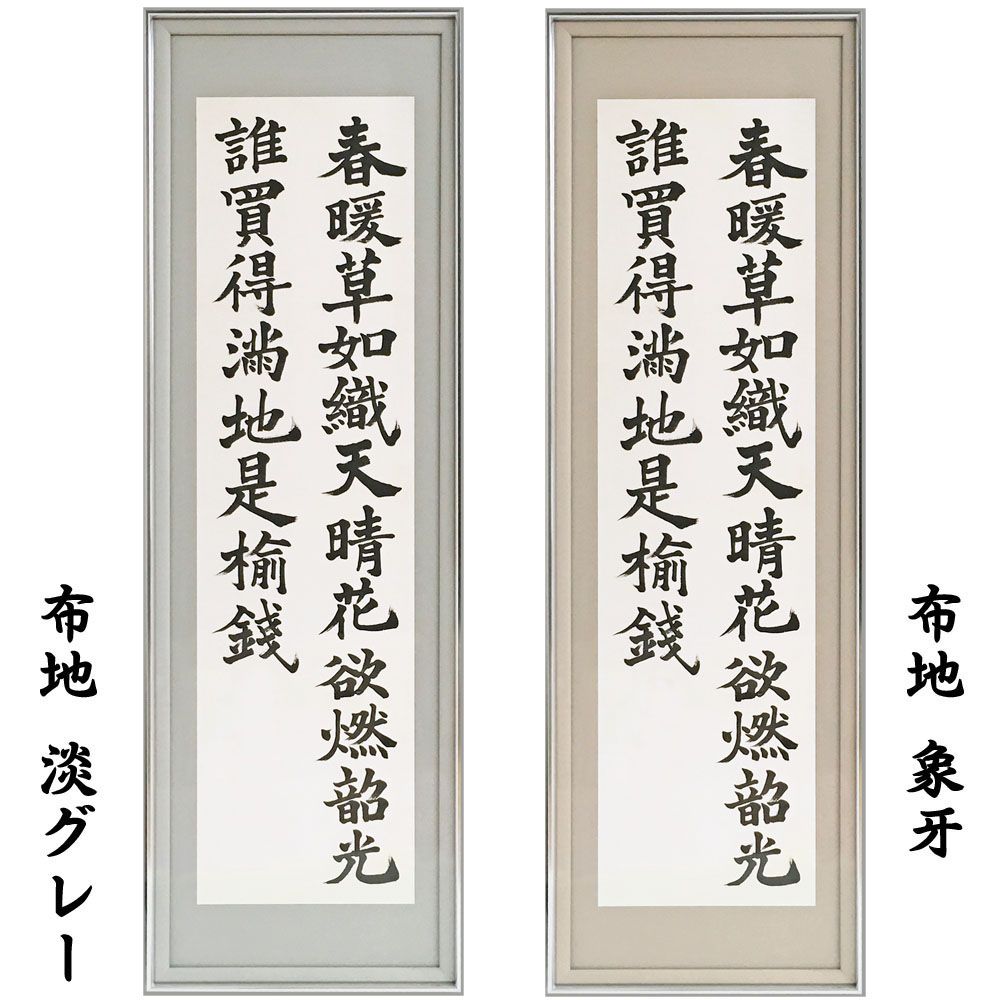 春暖草如織天晴花欲燃韶光
誰買得滿地是榆錢
布地 淡グレー
春暖草如織天晴花欲燃韶光
誰買得滿地是榆錢
布地 象牙